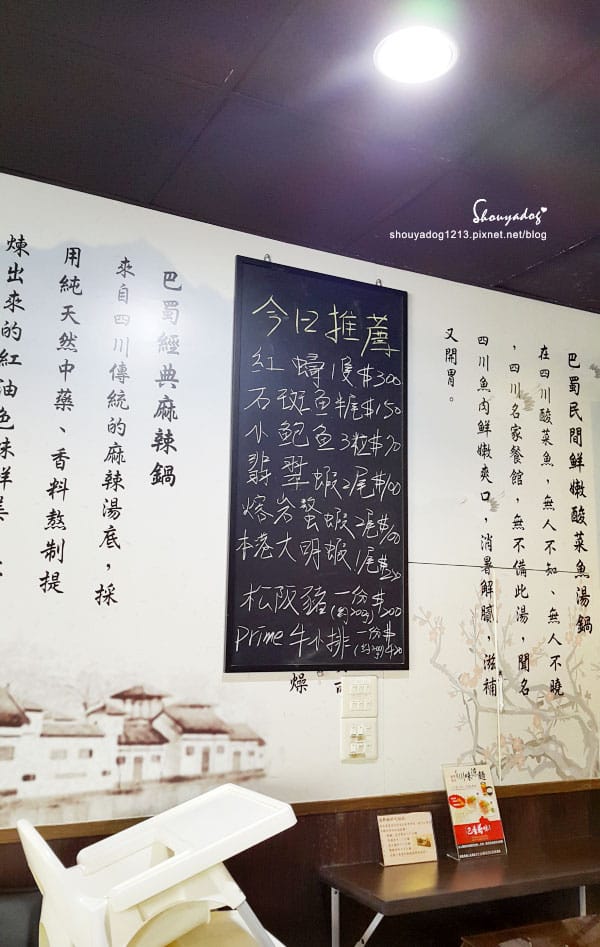 Shouyadog
shouyadog1213.pixnet.net/blog
今日推薦
紅蟳1隻$300
石斑魚半尾$150
小鮑魚3粒$70
翡翠蝦2尾$100
熔岩螯蝦2尾$100
本港大明蝦1尾
松阪豬一份$200
Prime牛小排一份$
巴蜀民間鮮嫩酸菜魚湯鍋
在四川酸菜魚,無人不知、無人不曉
,四川名家餐館,無不備此湯,聞名
四川魚肉鮮嫩爽口,消暑解膩,滋補
又開胃。
燥
巴蜀經典麻辣鍋
來自四川傳統的麻辣湯底,採
用純天然中藥、香料熬制提
煉出來的紅油色味鮮美